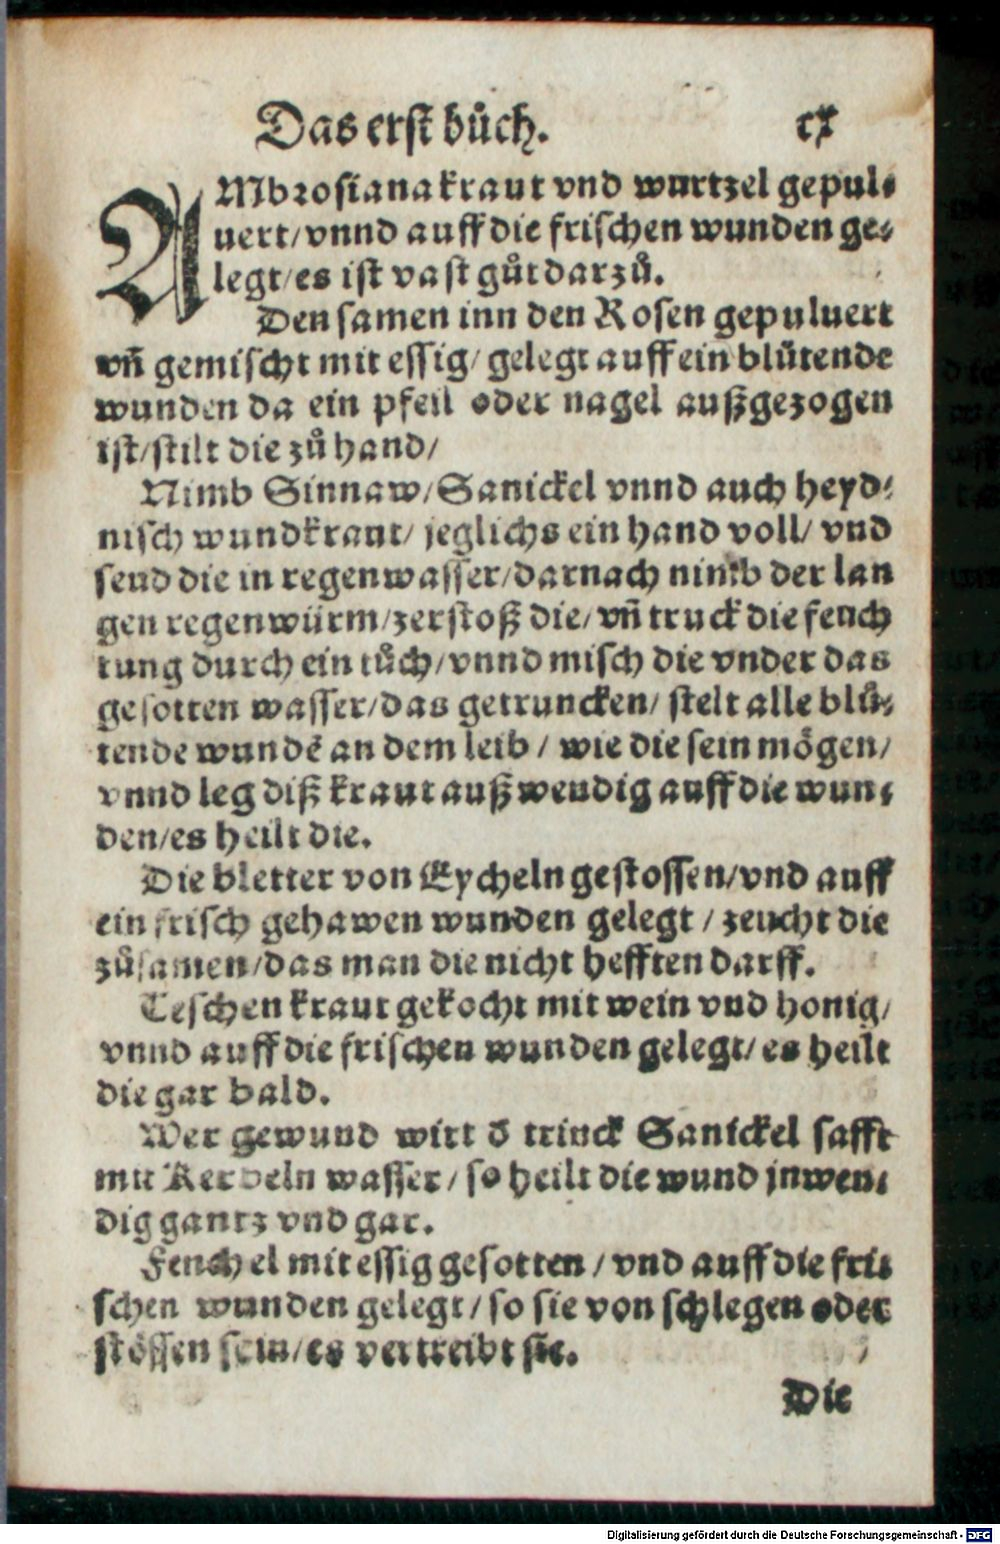 Das erst bůch. cx
AMbrosiana kraut vnd wurtzel gepul⸗
uert/vnnd auff die frischen wunden ge⸗
legt/es ist vast gůt darzů.
Den samen inn den Rosen gepuluert
vñ gemischt mit essig/ gelegt auff ein blůtende
wunden da ein pfeil oder nagel außgezogen
ist/stilt die zů hand/
Nimb Sinnaw/Sanickel vnnd auch heyd⸗
nisch wundkraut/ jeglichs ein hand voll/ vnd
seud die in regenwasser/darnach nimb der lan
gen regenwürm/zerstoß die/vñ truck die feuch
tung durch ein tůch/vnnd misch die vnder das
gesotten wasser/das getruncken/ stelt alle blů⸗
tende wundē an dem leib / wie die sein mögen/
vnnd leg diß kraut außwendig auff die wun⸗
den/es heilt die.
Die bletter von Eycheln gestossen/vnd auff
ein frisch gehawen wunden gelegt / zeucht die
zůsamen/das man die nicht hefften darff.
Teschen kraut gekocht mit wein vnd honig/
vnnd auff die frischen wunden gelegt/ es heilt
die gar bald.
Wer gewund wirt d̄ trinck Sanickel safft
mit Kerbeln wasser / so heilt die wund inwen⸗
dig gantz vnd gar.
Fenchel mit essig gesotten / vnd auff die fri⸗
schen wunden gelegt / so sie von schlegen oder
stössen sein/es vertreibt sie.
Die
Digitalisierung gefördert durch die Deutsche Forschungsgemeinschaft - DFG